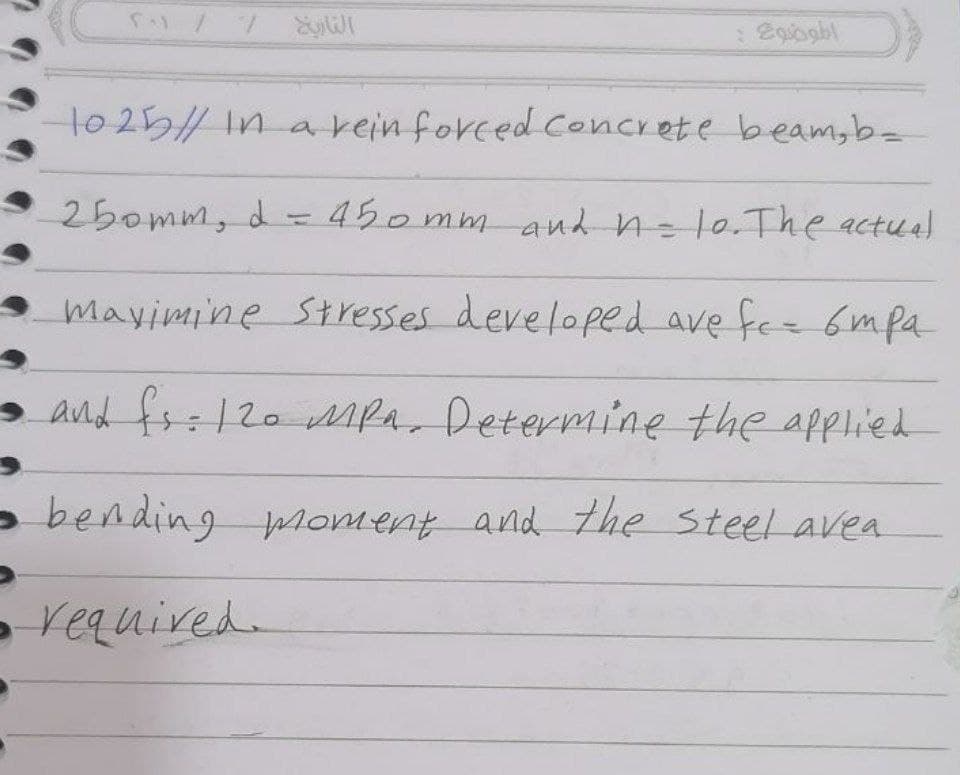 الموضوع :
التاريخ / / ٢٠١
1025// In a reinforced concrete beam, b=
250mm, d = 450mm and n = 10. The actual
maximine stresses developed are fc = 6mpa
and fs = 120 MPa. Determine the applied
bending moment and the steel area
required.